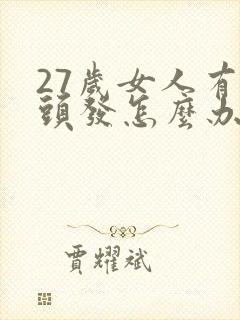 27歲女人有
頭發怎麼办
賈耀斌